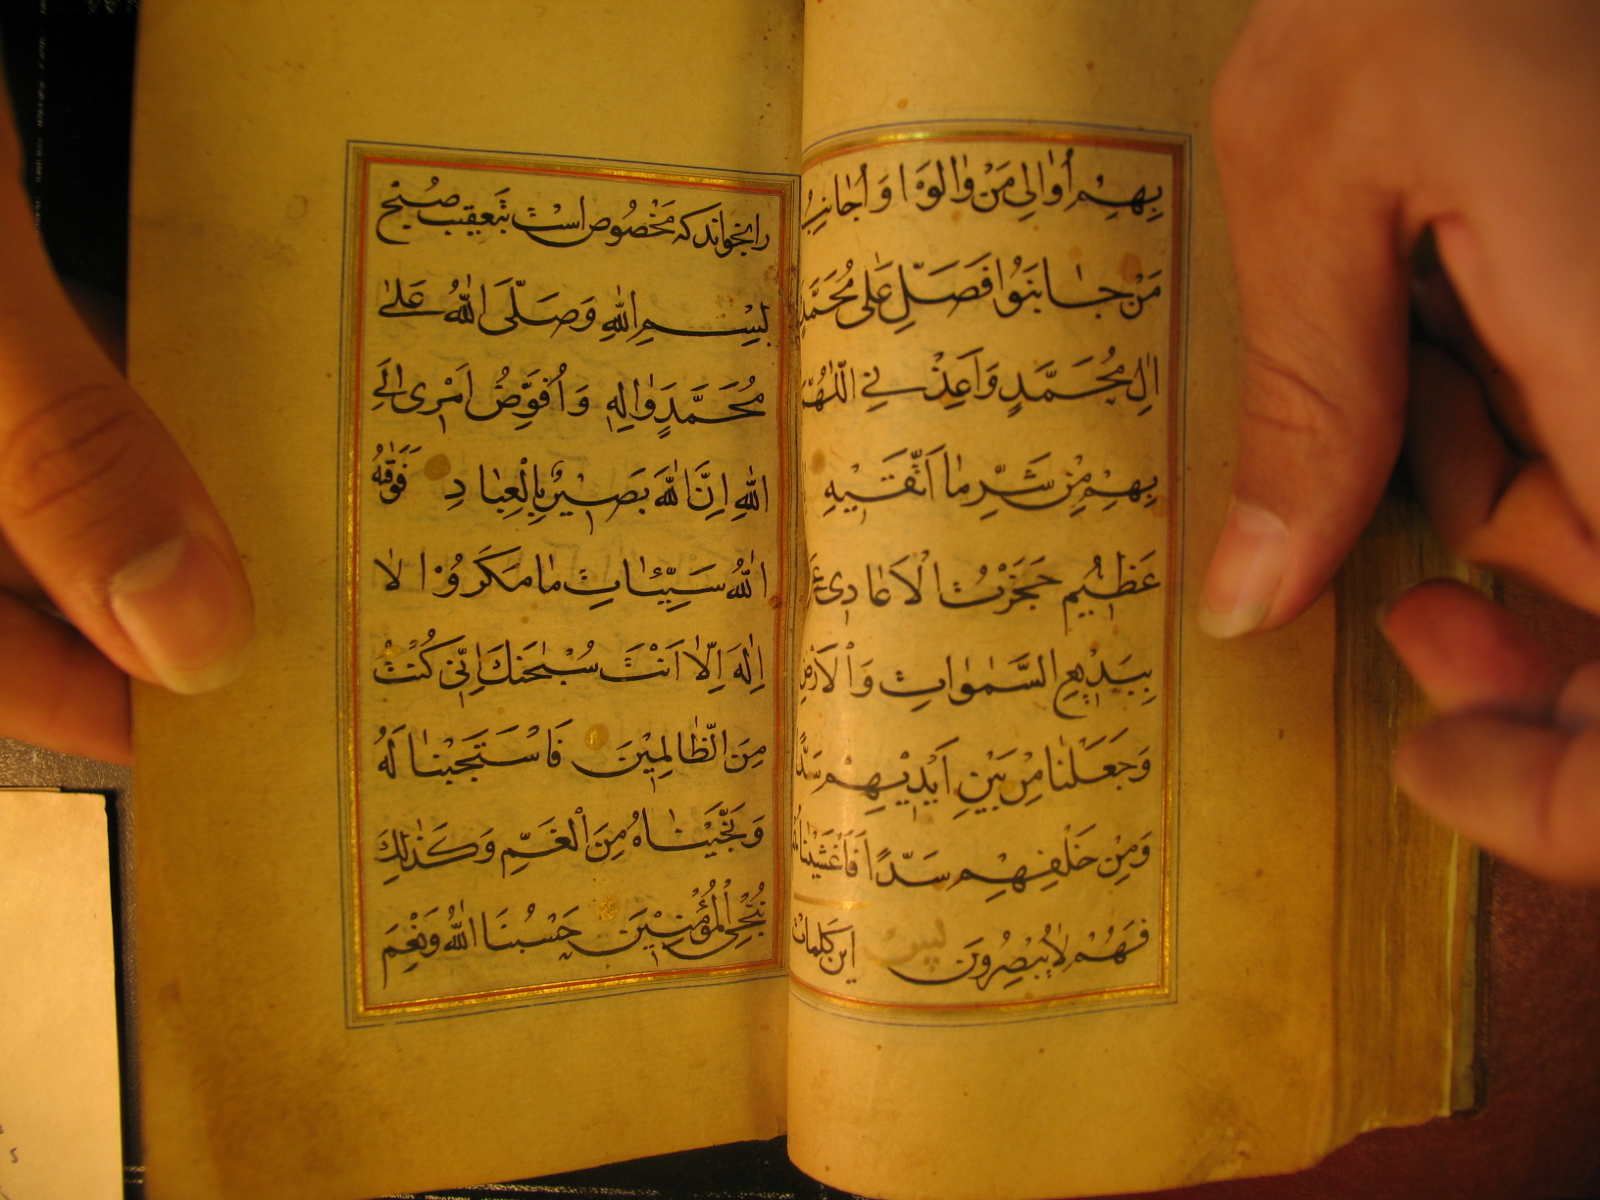 بِهِمْ اُوٰالِی مَنْ وٰالَوْا وَ اُجٰانِبُ
مَنْ جٰانَبُوا فَصَلِّ عَلٰی مُحَمَّدٍ
اٰلِ مُحَمَّدٍ وَاَعِذْنِی اللّٰهُمَّ
بِهِمْ مِنْ شَرِّ مٰا اَتَّقیٖهِ
عَظٖیمُ حَجَزْتُ الْاَعٰادِیَ
بِبَدیٖعِ السَّمٰوٰاتِ وَالْاَرْضِ
وَجَعَلْنٰا مِنْ بَیْنِ اَیْدٖیهِمْ سَدًّا
وَمِنْ خَلْفِهِمْ سَدًّا فَاَغْشَیْنٰاهُمْ
فَهُمْ لٰا یُبْصِرُونَ پس این کلمات
را بخواند که مخصوص است بتعقیب صبح
بِسْمِ اللهِ وَصَلَّی اللهُ عَلٰی
مُحَمَّدٍ وَاٰلِهِ وَاُفَوِّضُ اَمْرٖی اِلَی
اللهِ اِنَّ اللهَ بَصیٖرٌ بِالْعِبٰادِ فَوَقٰهُ
اللهُ سَیِّئٰاتِ مٰا مَکَرُوْا لٰا
اِلٰهَ اِلّٰا اَنْتَ سُبْحٰنَکَ اِنّٖی کُنْتُ
مِنَ الظّٰالِمیٖنَ فَاسْتَجَبْنٰا لَهُ
وَنَجَّیْنٰاهُ مِنَ الْغَمِّ وَکَذٰلِکَ
نُنْجِی الْمُؤْمِنیٖنَ حَسْبُنَا اللهُ وَنِعْمَ